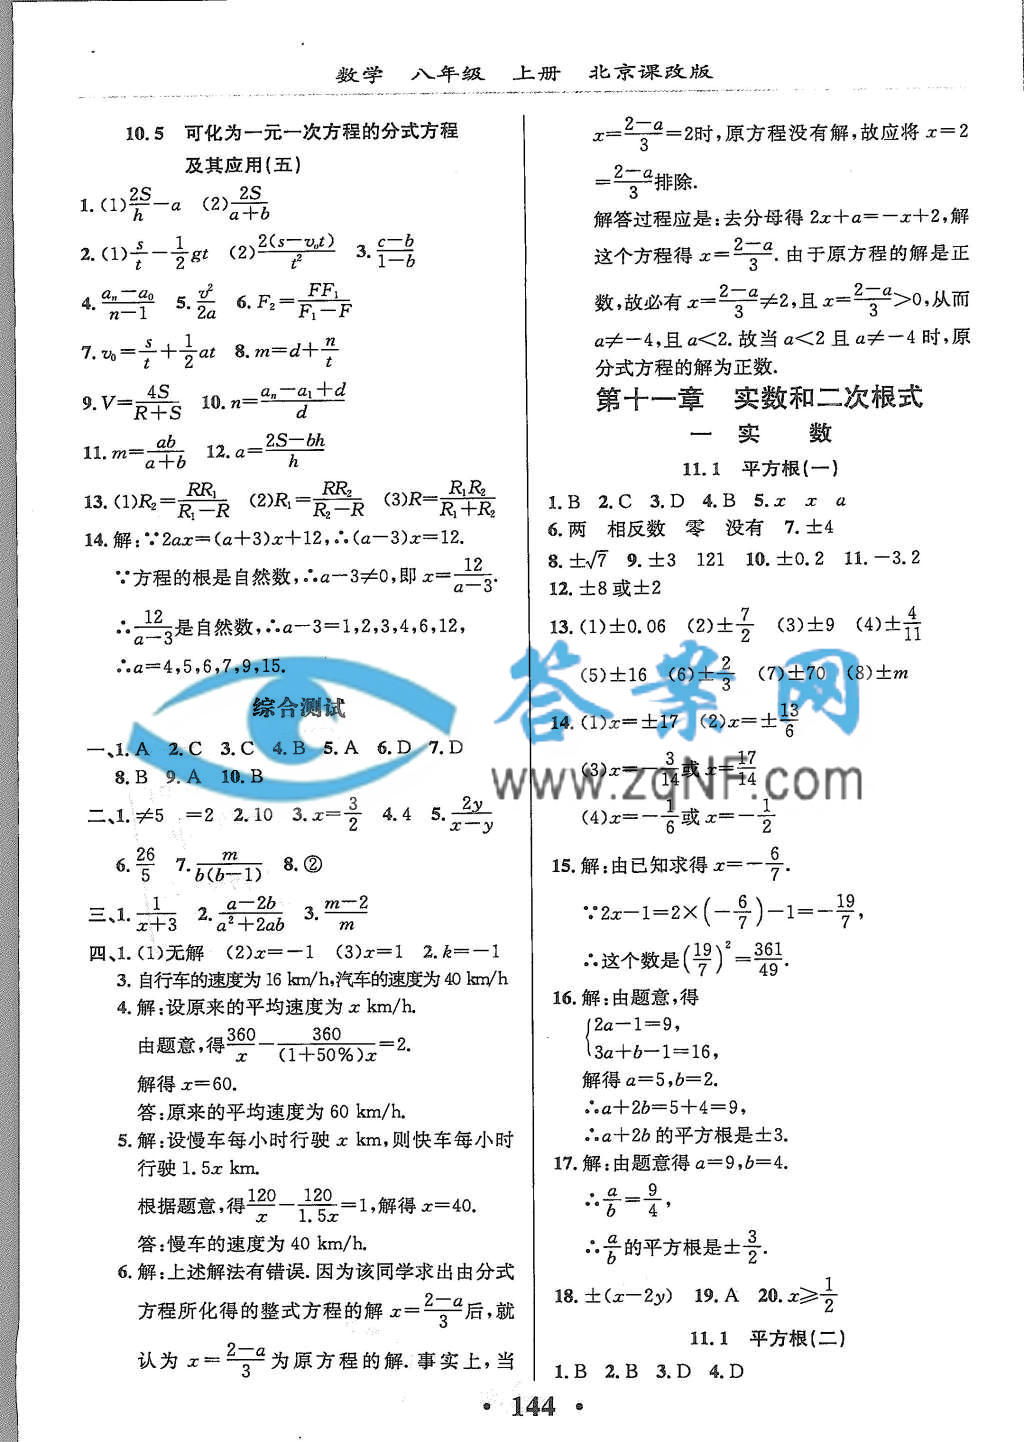 数学 八年级 上册 北京课改版
10.5 可化为一元一次方程的分式方程
及其应用(五)
1.(1)2S/h－a (2)2S/(a+b)
2.(1)s/t－1/2gt (2)2(s－v₀t)/t² 3.(c－b)/(1－b)
4.(aₙ－a₀)/(n－1) 5.v²/2a 6.F₂=FF₁/(F₁－F)
7.v₀=s/t+1/2at 8.m=d+n/t
9.V=4S/(R+S) 10.n=(aₙ－a₁+d)/d
11.m=ab/(a+b) 12.a=(2S－bh)/h
13.(1)R₂=RR₁/(R₁－R) (2)R₁=RR₂/(R₂－R) (3)R=R₁R₂/(R₁+R₂)
14.解:∵2ax=(a+3)x+12,∴(a－3)x=12.
∵方程的根是自然数,∴a－3≠0,即x=12/(a－3).
∴12/(a－3)是自然数,∴a－3=1,2,3,4,6,12,
∴a=4,5,6,7,9,15.
综合测试
一、1.A 2.C 3.C 4.B 5.A 6.D 7.D
8.B 9.A 10.B
二、1.≠5 =2 2.10 3.x=3/2 4.4 5.2y/(x－y)
6.26/5 7.m/(b(b－1)) 8.②
三、1.1/(x+3) 2.(a－2b)/(a²+2ab) 3.(m－2)/m
四、1.(1)无解 (2)x=－1 (3)x=1 2.k=－1
3.自行车的速度为16 km/h,汽车的速度为40 km/h
4.解:设原来的平均速度为x km/h.
由题意,得360/x－360/((1+50%)x)=2.
解得x=60.
答:原来的平均速度为60 km/h.
5.解:设慢车每小时行驶x km,则快车每小时
行驶1.5x km.
根据题意,得120/x－120/1.5x=1,解得x=40.
答:慢车的速度为40 km/h.
6.解:上述解法有错误.因为该同学求出由分式
方程所化得的整式方程的解x=(2－a)/3后,就
认为x=(2－a)/3为原方程的解.事实上,当
x=(2－a)/3=2时,原方程没有解,故应将x=2
=(2－a)/3排除.
解答过程应是:去分母得2x+a=－x+2,解
这个方程得x=(2－a)/3.由于原方程的解是正
数,故必有x=(2－a)/3≠2,且x=(2－a)/3>0,从而
a≠－4,且a<2.故当a<2且a≠－4时,原
分式方程的解为正数.
第十一章 实数和二次根式
一 实 数
11.1 平方根(一)
1.B 2.C 3.D 4.B 5.x x a
6.两 相反数 零 没有 7.±4
8.±√7 9.±3 121 10.±0.2 11.－3.2
12.±8或±2
13.(1)±0.06 (2)±7/2 (3)±9 (4)±4/11
(5)±16 (6)±2/3 (7)±70 (8)±m
14.(1)x=±17 (2)x=±13/6
(3)x=－3/14或x=17/14
(4)x=－1/6或x=－1/2
15.解:由已知求得x=－6/7.
∵2x－1=2×(－6/7)－1=－19/7,
∴这个数是(19/7)²=361/49.
16.解:由题意,得
{2a－1=9,
3a+b－1=16,
解得a=5,b=2.
∴a+2b=5+4=9,
∴a+2b的平方根是±3.
17.解:由题意得a=9,b=4.
∴a/b=9/4,
∴a/b的平方根是±3/2.
18.±(x－2y) 19.A 20.x≥1/2
11.1 平方根(二)
1.B 2.B 3.D 4.D
• 144 •
答案网
www.zqNF.com